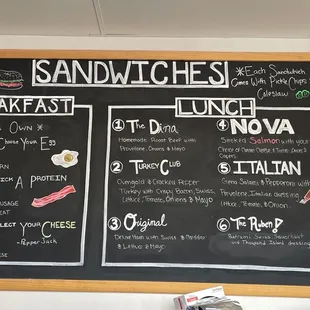 SANDWICHES
*Each Sandwich
Comes With Pickle Chips
Coleslaw
AKFAST
Own *
Choose Your Egg
ck A Protein
Sausage
Select Your Cheese
-Pepper Jack
LUNCH
1 The Dina
Homemade Roast Beef with
Provolone, Onions & Mayo
2 Turkey Club
Ovengold & Cracked Pepper
Turkey with Crispy Bacon, Swiss,
Lettuce, Tomato, Onions & Mayo
3 Original
with Swiss &
& Lettuce & Mayo
4 NOVA
Smoked Salmon with your
Choice of Cream Cheese, Tomato, Onions &
Capers
5 ITALIAN
Genoa Salami & Pepperoni with
Provolone, Italian Dressing
Lettuce, Tomato & Onion
6 The Ruben
Pastrami, Swiss, Sauerkraut
and Thousand Island dressing